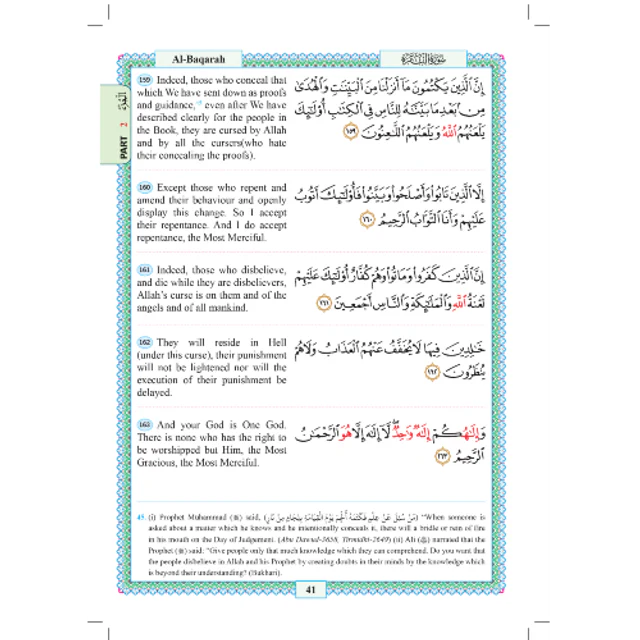 Al-Baqarah
سُورَةُ الْبَقَرَة
الْبَقَرَة
PART 2
159 Indeed, those who conceal that
which We have sent down as proofs
and guidance,⁴⁵ even after We have
described clearly for the people in
the Book, they are cursed by Allah
and by all the cursers(who hate
their concealing the proofs).
إِنَّ ٱلَّذِينَ يَكْتُمُونَ مَآ أَنزَلْنَا مِنَ ٱلْبَيِّنَٰتِ وَٱلْهُدَىٰ
مِنۢ بَعْدِ مَا بَيَّنَّٰهُ لِلنَّاسِ فِى ٱلْكِتَٰبِ أُو۟لَٰٓئِكَ
يَلْعَنُهُمُ ٱللَّهُ وَيَلْعَنُهُمُ ٱللَّٰعِنُونَ ١٥٩
160 Except those who repent and
amend their behaviour and openly
display this change. So I accept
their repentance. And I do accept
repentance, the Most Merciful.
إِلَّا ٱلَّذِينَ تَابُوا۟ وَأَصْلَحُوا۟ وَبَيَّنُوا۟ فَأُو۟لَٰٓئِكَ أَتُوبُ
عَلَيْهِمْ وَأَنَا ٱلتَّوَّابُ ٱلرَّحِيمُ ١٦٠
161 Indeed, those who disbelieve,
and die while they are disbelievers,
Allah's curse is on them and of the
angels and of all mankind.
إِنَّ ٱلَّذِينَ كَفَرُوا۟ وَمَاتُوا۟ وَهُمْ كُفَّارٌ أُو۟لَٰٓئِكَ عَلَيْهِمْ
لَعْنَةُ ٱللَّهِ وَٱلْمَلَٰٓئِكَةِ وَٱلنَّاسِ أَجْمَعِينَ ١٦١
162 They will reside in Hell
(under this curse), their punishment
will not be lightened nor will the
execution of their punishment be
delayed.
خَٰلِدِينَ فِيهَا لَا يُخَفَّفُ عَنْهُمُ ٱلْعَذَابُ وَلَا هُمْ
يُنظَرُونَ ١٦٢
163 And your God is One God.
There is none who has the right to
be worshipped but Him, the Most
Gracious, the Most Merciful.
وَإِلَٰهُكُمْ إِلَٰهٌ وَٰحِدٌ لَّآ إِلَٰهَ إِلَّا هُوَ ٱلرَّحْمَٰنُ
ٱلرَّحِيمُ ١٦٣
45. (i) Prophet Muhammad (ﷺ) said, (مَنْ سُئِلَ عَنْ عِلْمٍ فَكَتَمَهُ أُلْجِمَ يَوْمَ الْقِيَامَةِ بِلِجَامٍ مِنْ نَارٍ) "When someone is
asked about a matter which he knows and he intentionally conceals it, there will a bridle or rein of fire
in his mouth on the Day of Judgement. (Abu Dawud-3658, Tirmidhi-2649) (ii) Ali () narrated that the
Prophet (ﷺ) said: "Give people only that much knowledge which they can comprehend. Do you want that
the people disbelieve in Allah and his Prophet by creating doubts in their minds by the knowledge which
is beyond their understanding? (Bukhari).
41